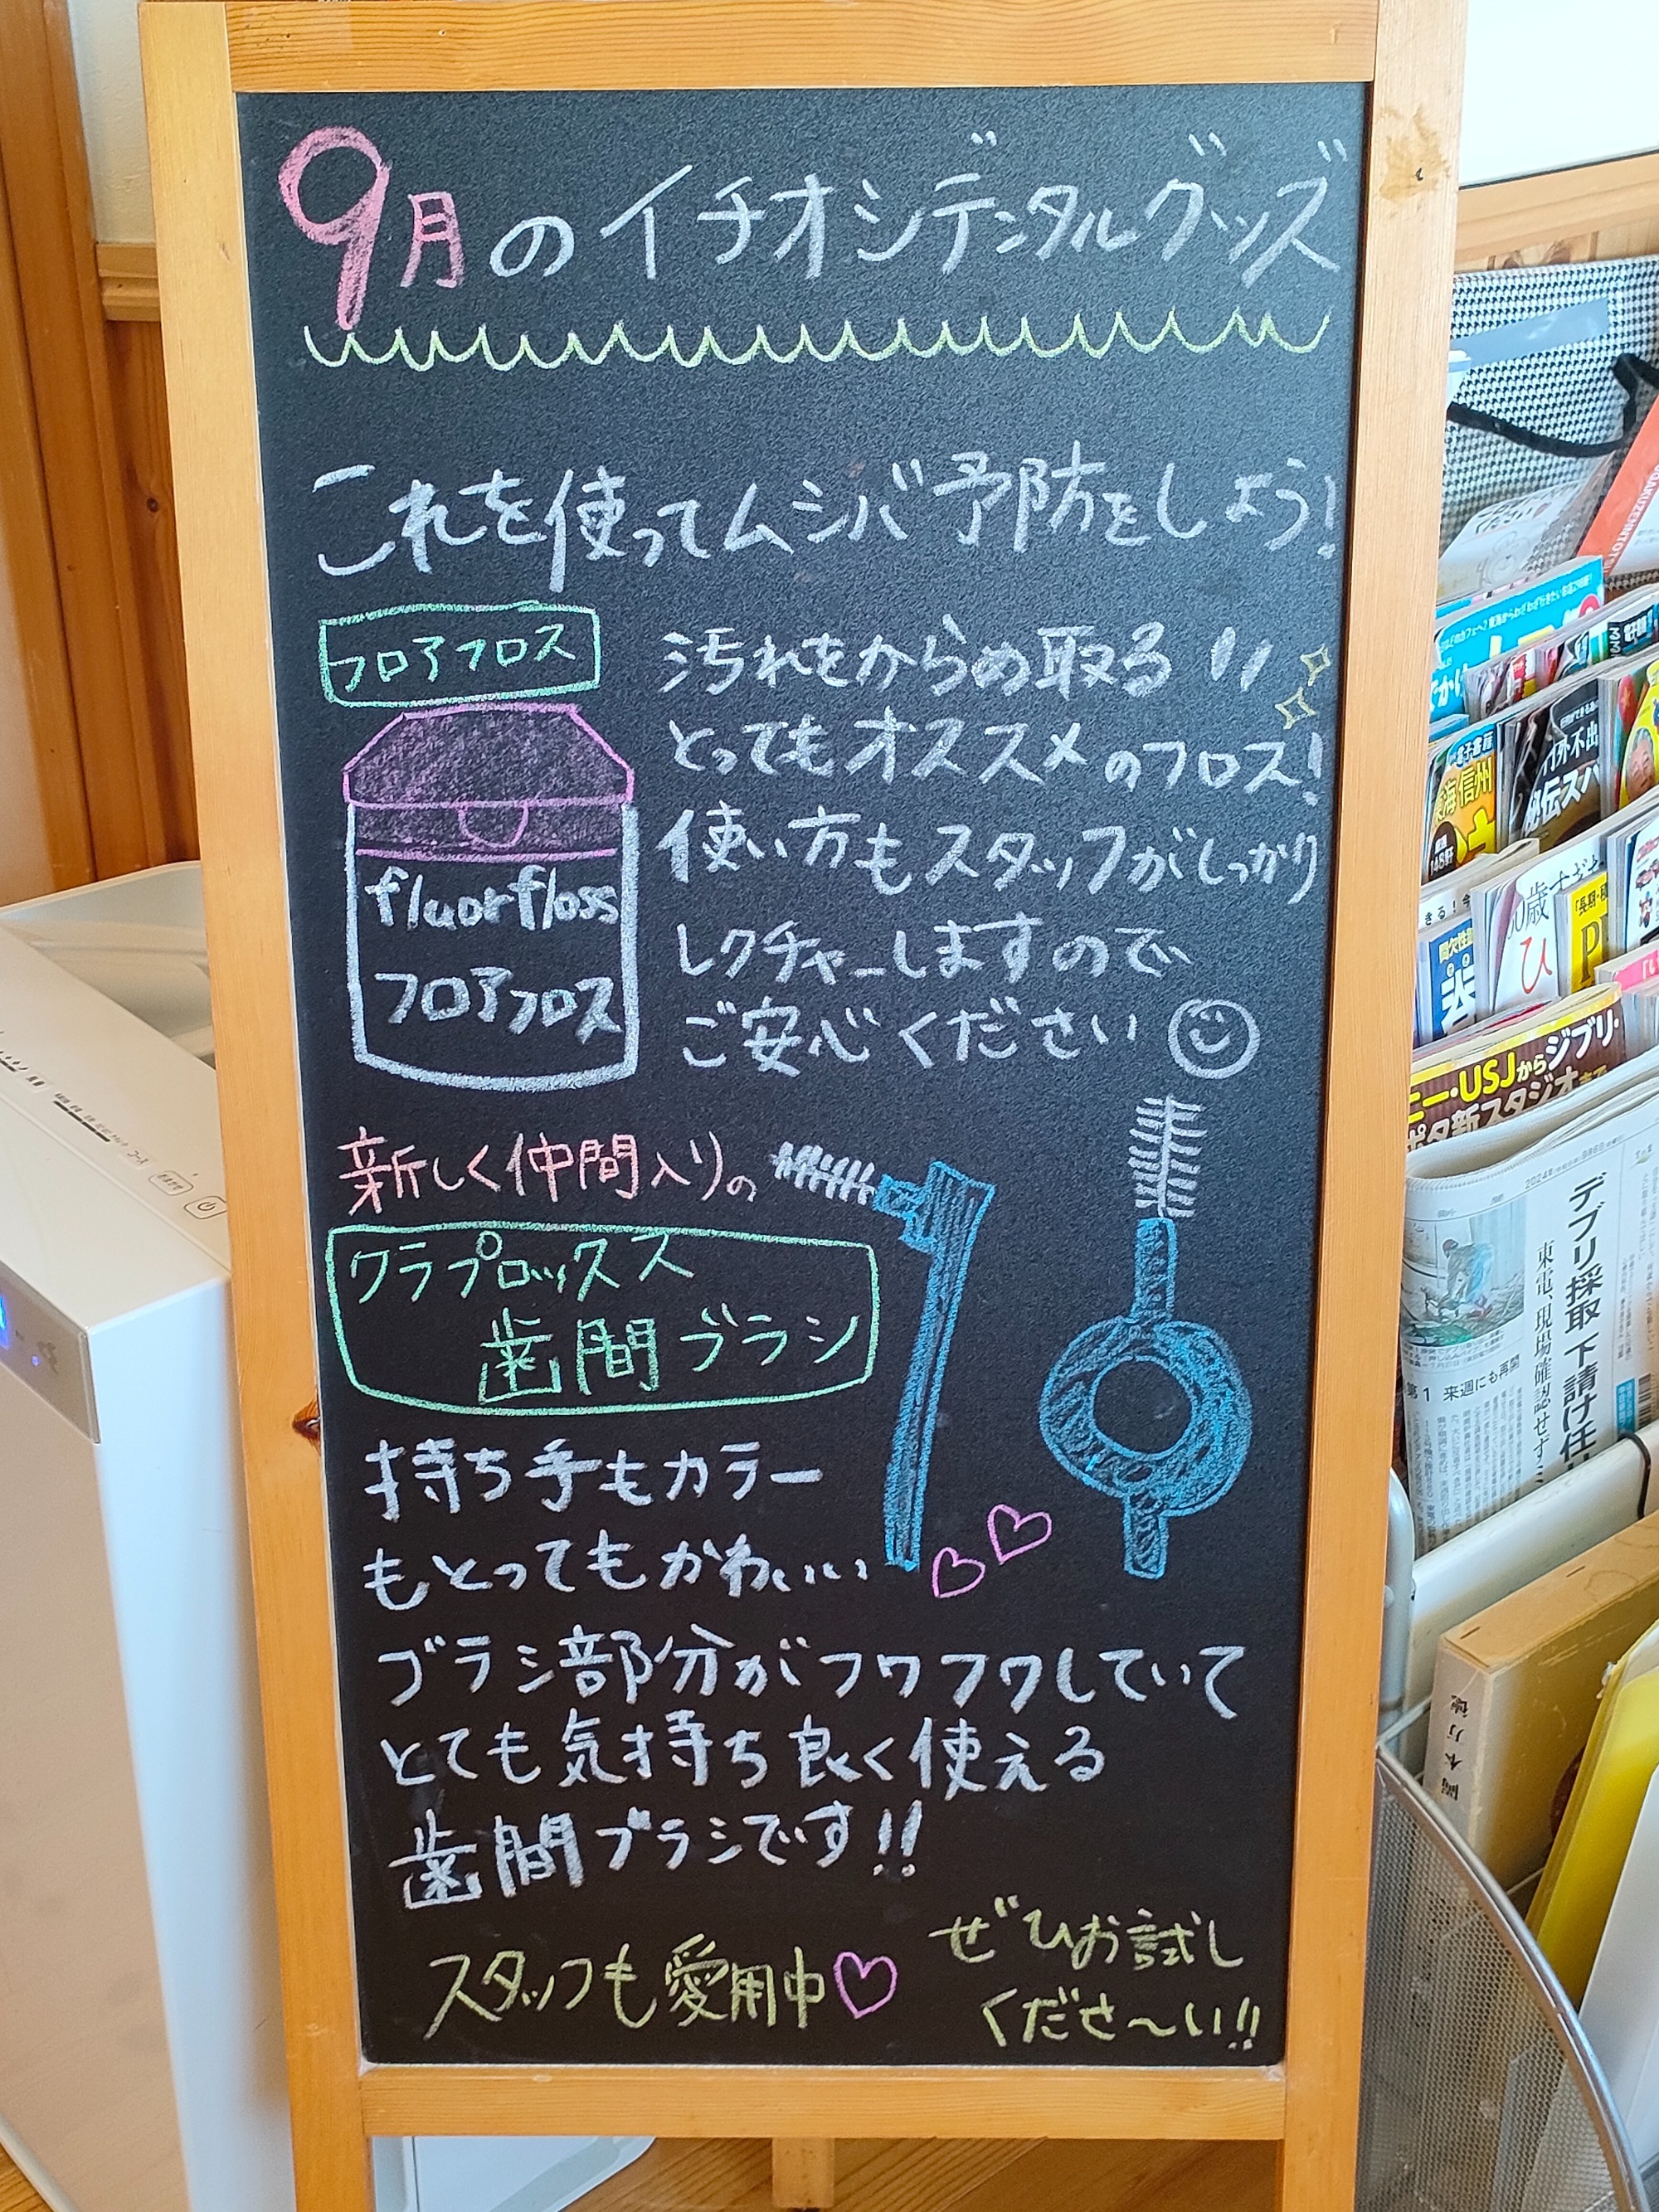 9月のイチオシデンタルグッズ
これを使ってムシバ予防をしよう!
フロアフロス
汚れをからめ取る!!
とってもオススメのフロス!
使い方もスタッフがしっかり
レクチャーしますので、
ご安心ください
fluorfloss
フロアフロス
新しく仲間入りの
クラプロックス
歯間ブラシ
持ち手もカラー
もとってもかわいい
ブラシ部分がフワフワしていて
とても気持ち良く使える
歯間ブラシです!!
スタッフも愛用中♡
ぜひお試し
くださ〜い!!
ニー・USJからジブリ・
デブリ採取 下請け任
東電、現場確認せず
第1 来週にも再開
岡本万穂